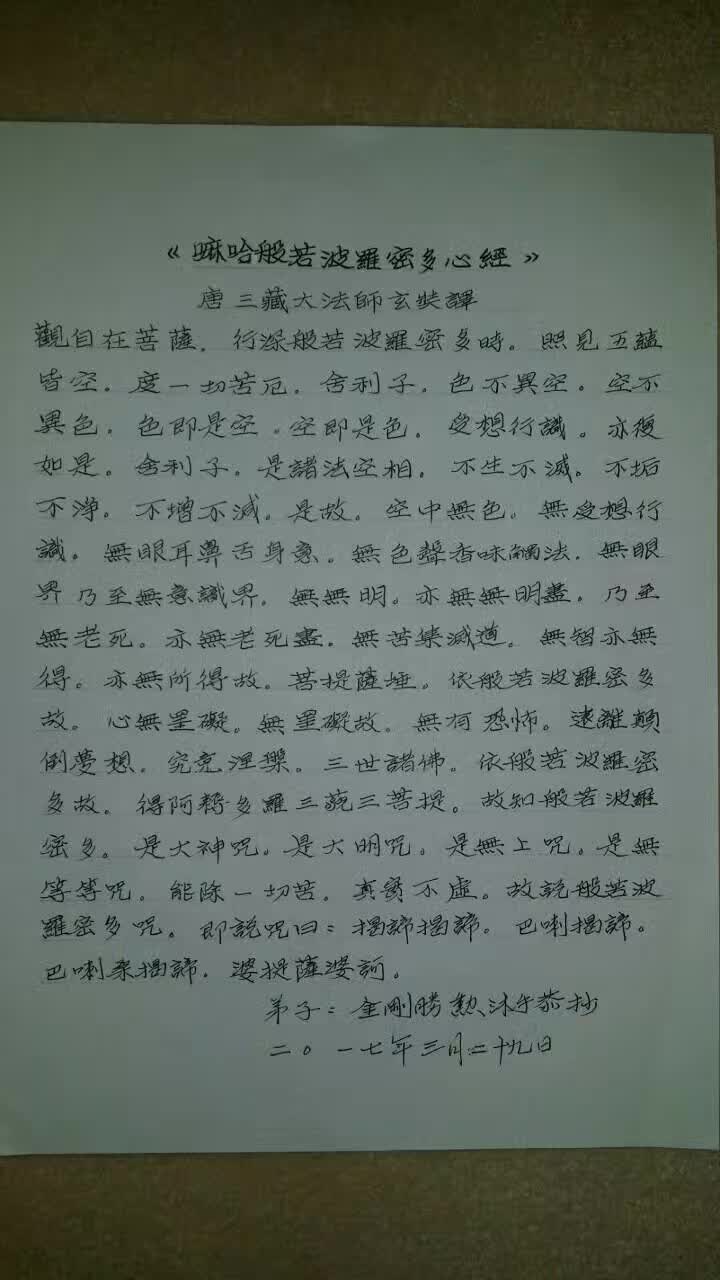 《嘛哈般若波羅密多心經》
唐三藏大法師玄奘譯
觀自在菩薩．行深般若波羅密多時。照見五蘊
皆空．度一切苦厄．舍利子．色不異空。空不
異色．色即是空．空即是色．受想行識。亦復
如是。舍利子．是諸法空相．不生不滅。不垢
不淨．不增不減．是故．空中無色。無受想行
識。無眼耳鼻舌身意。無色聲香味觸法．無眼
界乃至無意識界．無無明。亦無無明盡．乃至
無老死。亦無老死盡．無苦集滅道。無智亦無
得。亦無所得故。菩提薩埵。依般若波羅密多
故。心無罣礙。無罣礙故。無有恐怖。遠離顛
倒夢想．究竟涅槃。三世諸佛。依般若波羅密
多故。得阿耨多羅三藐三菩提。故知般若波羅
密多。是大神咒。是大明咒。是無上咒。是無
等等咒。能除一切苦．真實不虛。故說般若波
羅密多咒。即說咒曰：揭諦揭諦．巴喇揭諦。
巴喇桒揭諦．婆提薩婆訶。
弟子：金剛勝勲沐手恭抄
二〇一七年三月二十九日